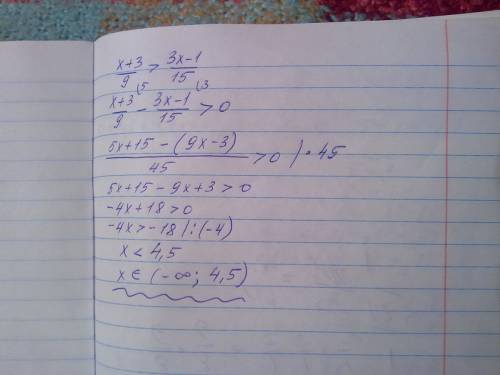 x+3/9 > 3x-1/15
x+3/9 (5 - 3x-1/15 (3 > 0
5x+15-(9x-3)/45 > 0 | • 45
5x+15-9x+3>0
-4x+18>0
-4x>-18 | :(-4)
x < 4,5
x ∈ (-∞; 4,5)